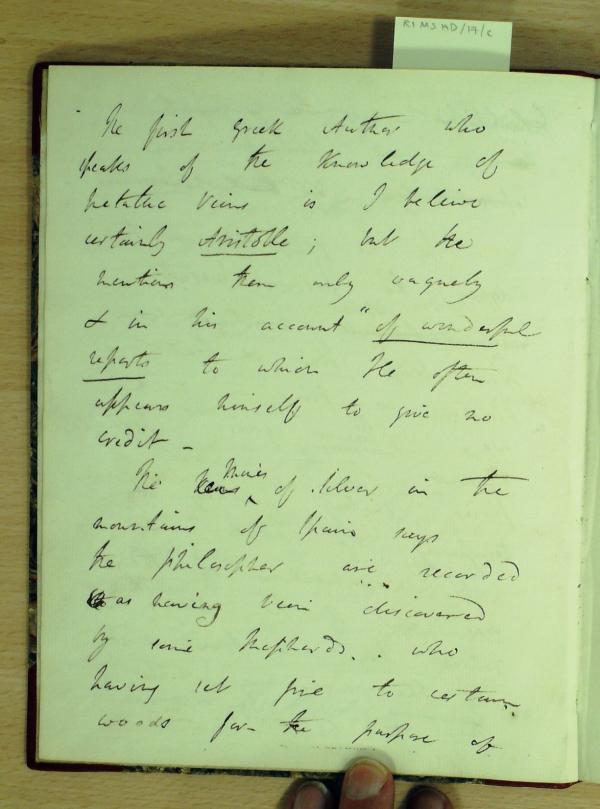 RI MS HD/17/c
The first Greek Author who
speaks of the Knowledge of
metallic Veins is I believe
certainly Aristotle; but He
mentions them only vaguely
& in his account "of wonderful
reports to which He often
appears himself to give no
credit -
The Mines of Silver in the
mountains of Spain says
the philosopher are recorded
as having been discovered
by some Shepherds.. who
having set fire to certain
woods for the purpose of